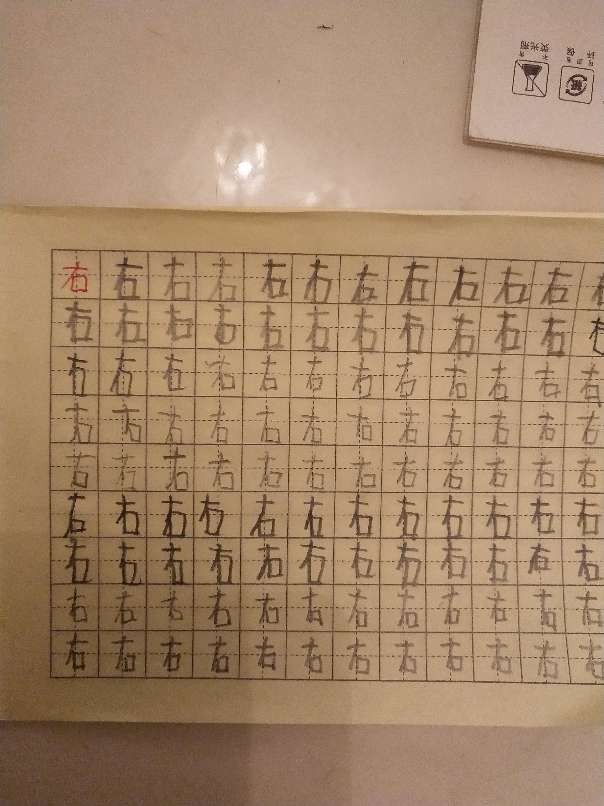 右右右右右右右右右右右右
右右右右右右右右右右右右
右右右右右右右右右右右右
右右右右右右右右右右右右
右右右右右右右右右右右右
右右右右右右右右右右右右
右右右右右右右右右右右右
右右右右右右右右右右右右
右右右右右右右右右右右右